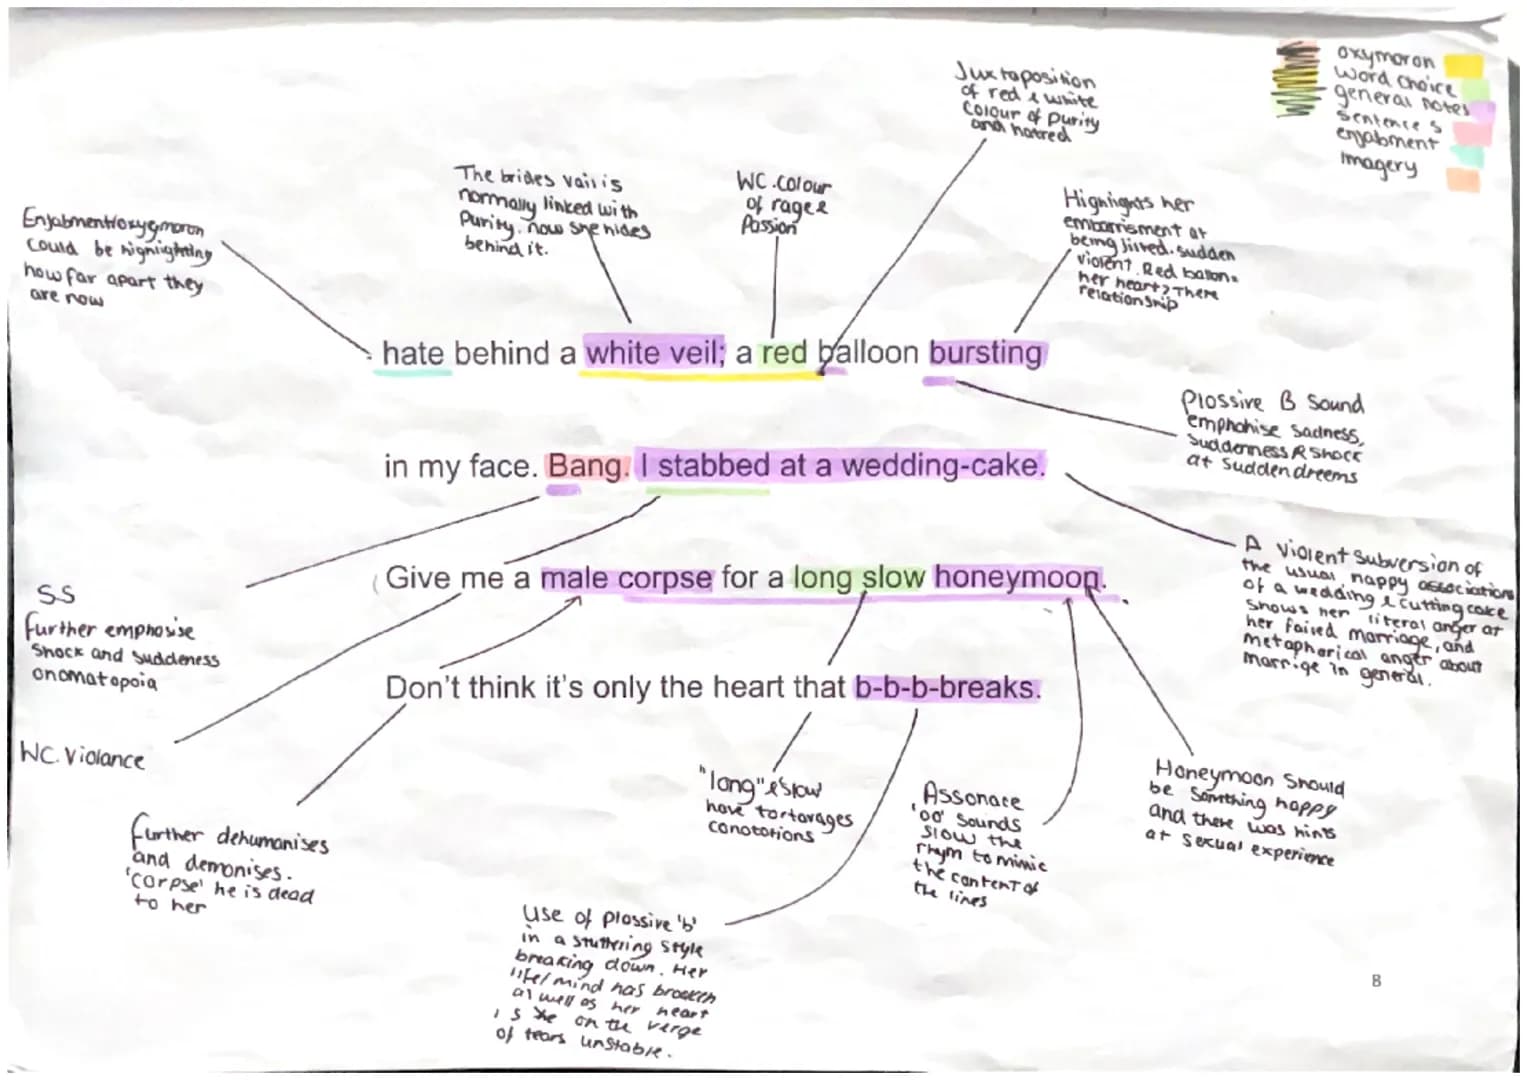 oxymoron
word choice
general notes
sentence s
enjabment
imagery
Juxtaposition
of red & white
Colour of purity
and hatred
The brides vail is
normally linked with
Purity. now she hides
behind it.
WC. colour
of rage &
Passion
Highlights her
embarrisment at
being jilted. sudden
violent. Red ballon=
her heart? There
relationship
Enjabment/oxygmoron
Could be highlighting
how far apart they
are now
hate behind a white veil; a red balloon bursting
Plossive B Sound
emphohise sadness,
Suddenness & Shock
at sudden dreems
in my face. Bang. I stabbed at a wedding-cake.
A violent Subversion of
the usual happy associations
of a wedding & cutting cake
Shows her literal anger at
her failed marriage, and
metaphorical anger about
marrige in general.
Give me a male corpse for a long slow honeymoon.
SS
further emphosise
Shock and suddeness
onomatopoia
Don't think it's only the heart that b-b-b-breaks.
WC. Violance
further dehumanises
and demonises.
'corpse' he is dead
to her
"long" & slow
have tortorages
conotations
Assonace
'oo' sounds
slow the
rhym to mimic
the content of
the lines
Honeymoon Should
be Something happy
and there was hints
at sexual experience
Use of plossive 'b'
in a stuttering style
breaking down. Her
life/mind has brocken
as well as her heart
is she on the verge
of tears unstable.
B